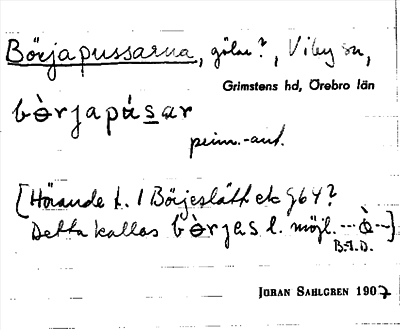 Börjapussarna, gölar?, Viby sn,
Grimstens hd, Örebro län
bèrjapúsar
prim.-ant.
[Hörande t. 1 Börjeslätt ek 964?
Detta kallas bèrjas l. möjl. --- ò ---]
B.I.D.
JÖRAN SAHLGREN 1907